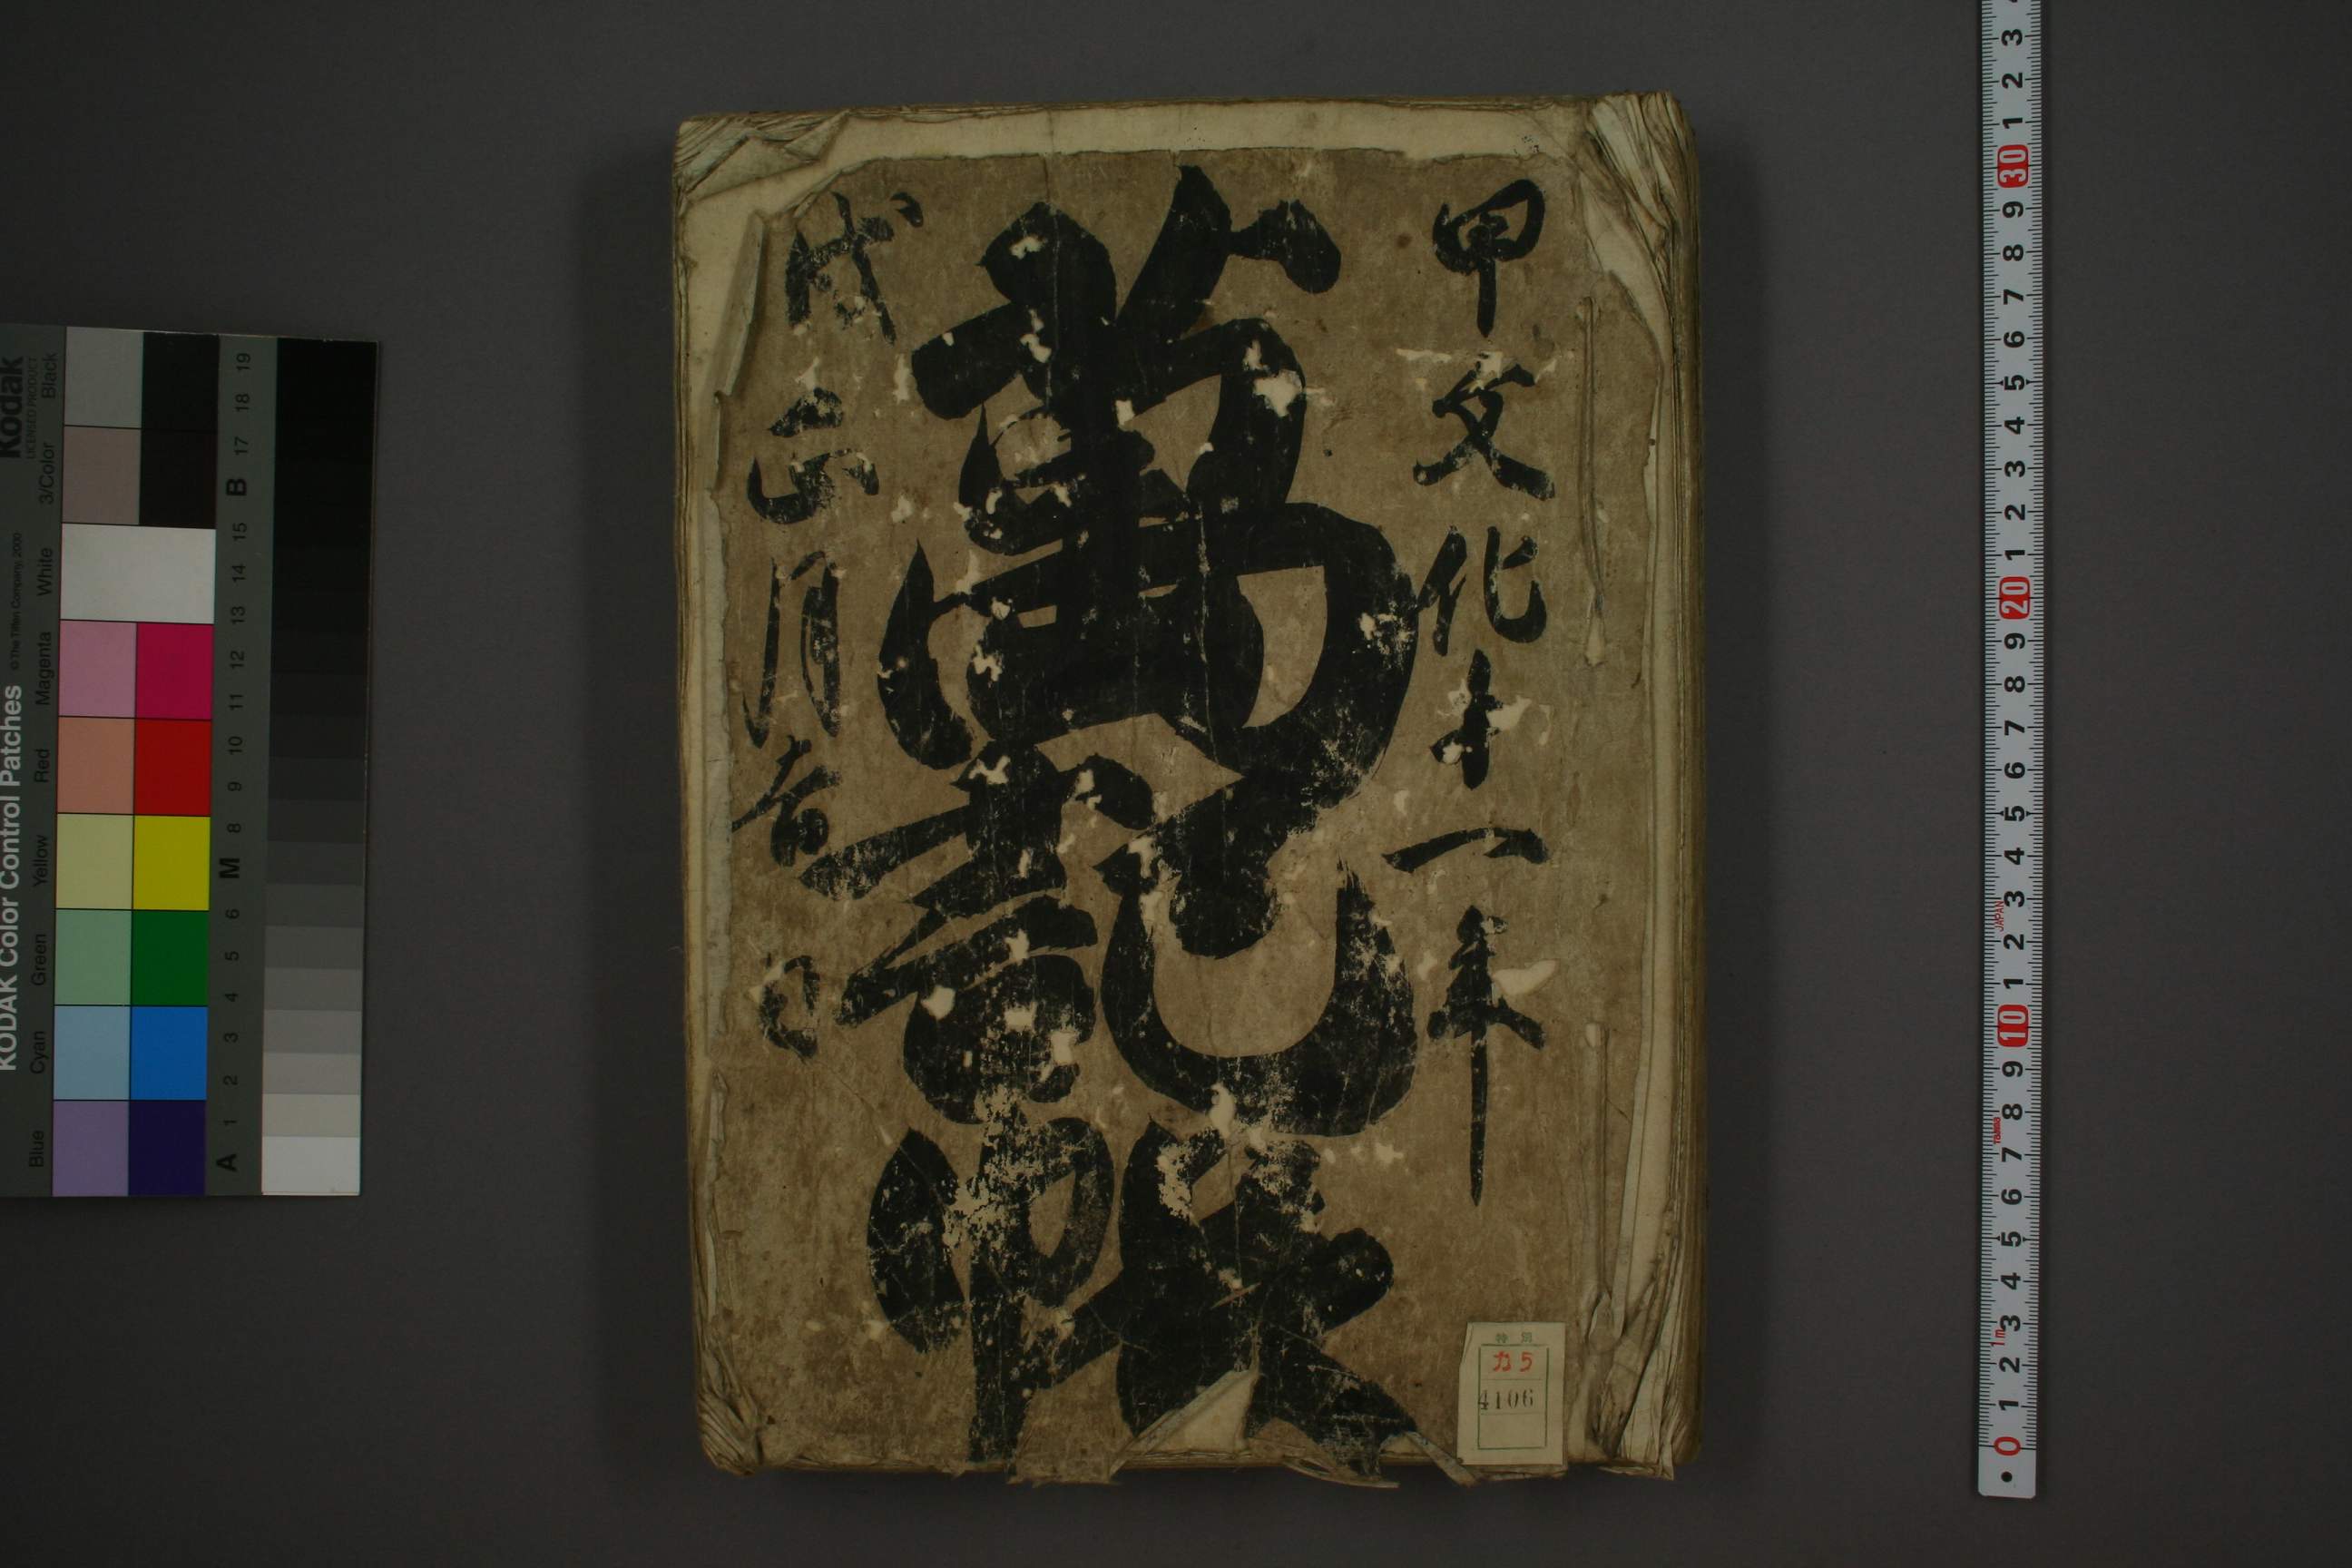 甲文化十一年
萬記帳
戌正月吉日
特別
カ5
4106
3 2 1 30 9 8 7 6 5 4 3 2 1 20 9 8 7 6 5 4 3 2 1 10 9 8 7 6 5 4 3 2 1 0
JAPAN
1m
KODAK Color Control Patches
© The Tiffen Company, 2000
Kodak
LICENSED PRODUCT
Blue Cyan Green Yellow Red Magenta White 3/Color Black
A 1 2 3 4 5 6 M 8 9 10 11 12 13 14 15 B 17 18 19